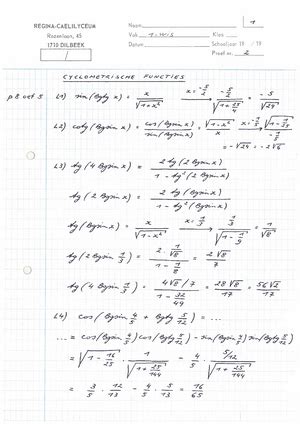 REGINA-CAELILYCEUM
Rozenlaan, 45
1710 DILBEEK
Naam 1
Vak 1 Klas
Datum Schooljaar 19 / 19
Proef nr. 2
CYCLOMETRISCHE FUNCTIES
p 8 oef 5 L1) sin(Bgtg x) = x/√(1+x²) x=-5/2 → (-5/2)/√(1+25/4) = -5/√29
L2) cotg(Bgsin x) = cos(Bgsin x)/sin(Bgsin x) = √(1-x²)/x x=-1/5 → √(1-1/25)/(-1/5)
= -√24 = -2√6
L3) tg(4 Bgsin x) = 2 tg(2 Bgsin x)/(1 - tg²(2 Bgsin x))
tg(2 Bgsin x) = 2 tg(Bgsin x)/(1 - tg²(Bgsin x))
tg(Bgsin x) = x/√(1-x²) x=1/3 → (1/3)/√(1-1/9) = 1/√8
tg(2 Bgsin 1/3) = (2 · 1/√8)/(1 - 1/8) = 2√8/7
tg(4 Bgsin 1/3) = (4√8/7)/(1 - 32/49) = 28√8/17 = 56√2/17
L4) cos(Bgsin 4/5 + Bgtg 5/12) = ...
... = cos(Bgsin 4/5) cos(Bgtg 5/12) - sin(Bgsin 4/5) sin(Bgtg 5/12)
= √(1 - 16/25) · 1/√(1 + 25/144) - 4/5 · (5/12)/√(1 + 25/144)
= 3/5 · 12/13 - 4/5 · 5/13 = 16/65